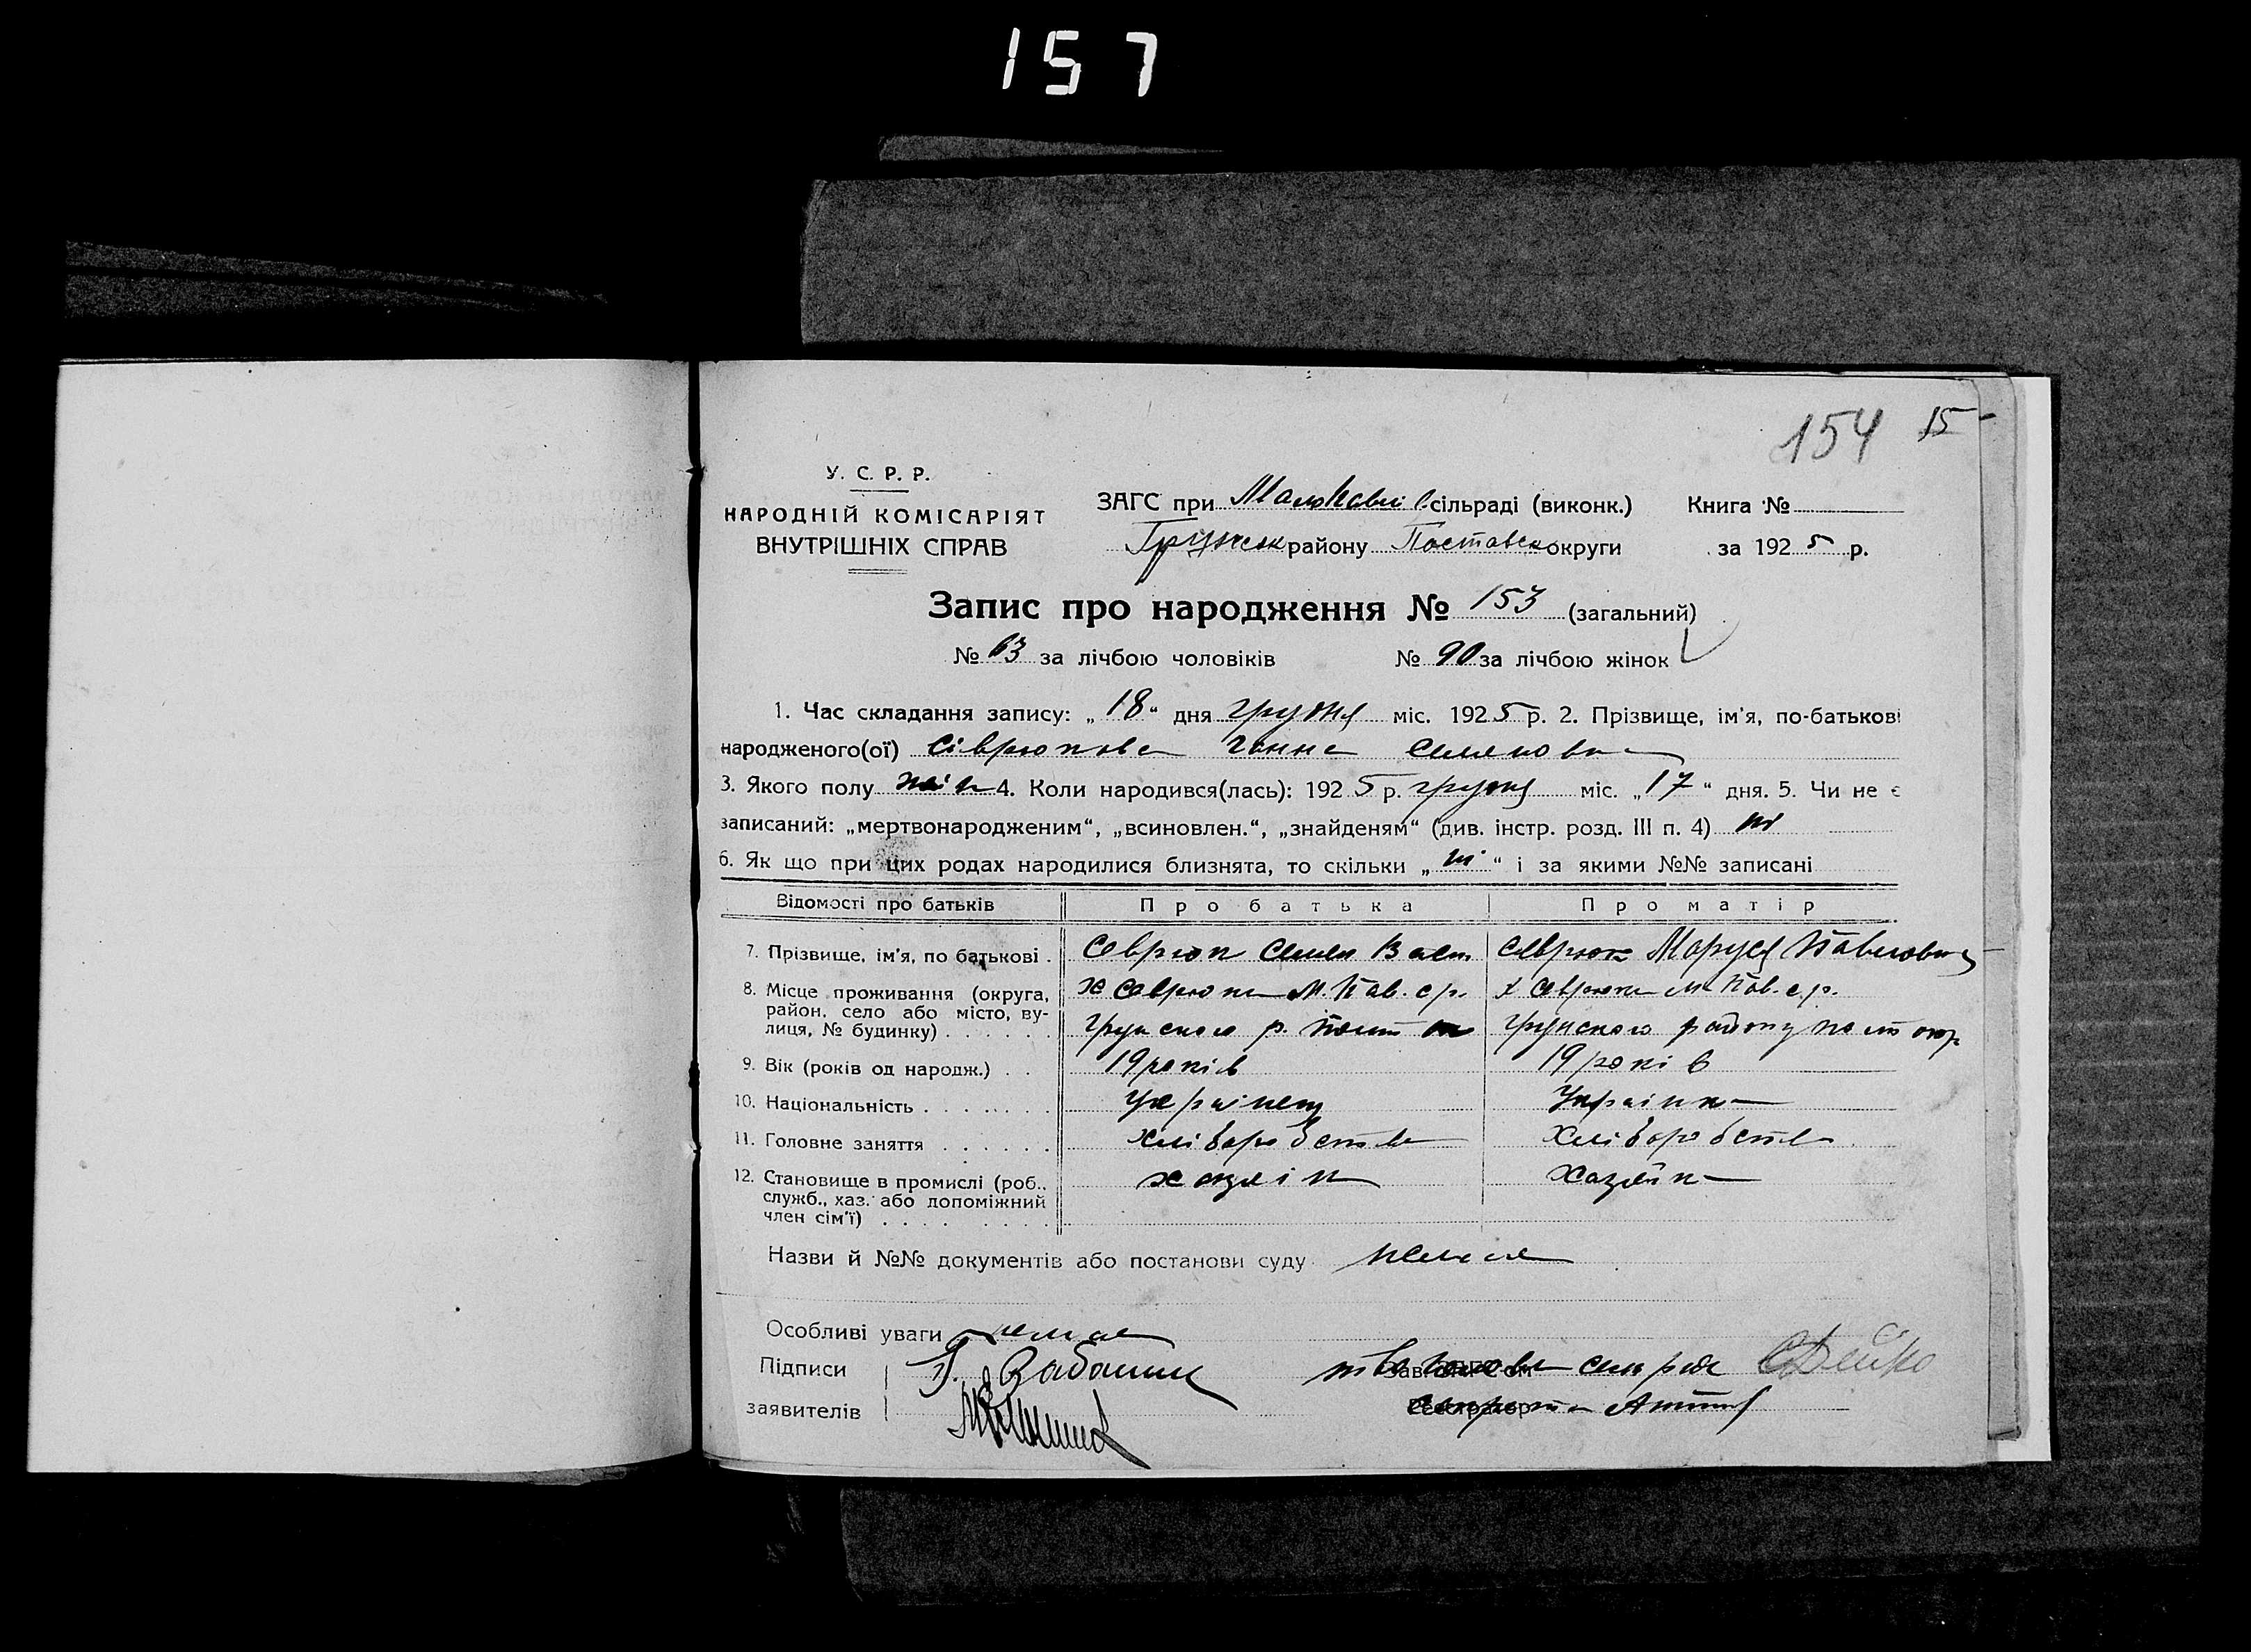 157
154 15
У. С. Р. Р.
НАРОДНІЙ КОМІСАРІЯТ
ВНУТРІШНІХ СПРАВ
ЗАГС при МалоПавлі сільраді (виконк.) Книга №
Грунськ району Полтавськ округи за 1925 р.
Запис про народження № 153 (загальний)
№ 63 за лічбою чоловіків № 90 за лічбою жінок
1. Час складання запису: „18“ дня грудня міс. 1925 р. 2. Прізвище, ім'я, по-батькові
народженого(ої) Сіврюкова Ганна Семеновна
3. Якого полу жін 4. Коли народився(лась): 1925 р. грудня міс. „17“ дня. 5. Чи не є
записаний: „мертвонародженим“, „всиновлен.“, „знайденям“ (див. інстр. розд. III п. 4) ні
6. Як що при цих родах народилися близнята, то скільки „ні“ і за якими №№ записані
Відомості про батьків Про батька Про матір
7. Прізвище, ім'я, по батькові . Севрюк Семен Васил Севрюк Маруся Павловна
8. Місце проживання (округа, район, село або місто, вулиця, № будинку) х Севрюки М. Пав. с/р. х Севрюки М Пав. с.р.
Грунського р. Полт Грунського району Полт окр
9. Вік (років од народж.) . . 19 років 19 років
10. Національність . . . . . . . Українец Українка
11. Головне заняття . . . . . . хліборобство хліборобство
12. Становище в промислі (роб., служб., хаз. або допоміжний член сім'ї) . . . . хазяін хазяйка
Назви й №№ документів або постанови суду немає
Особливі уваги немає
Підписи
заявителів
тво голови сільради
Секретар